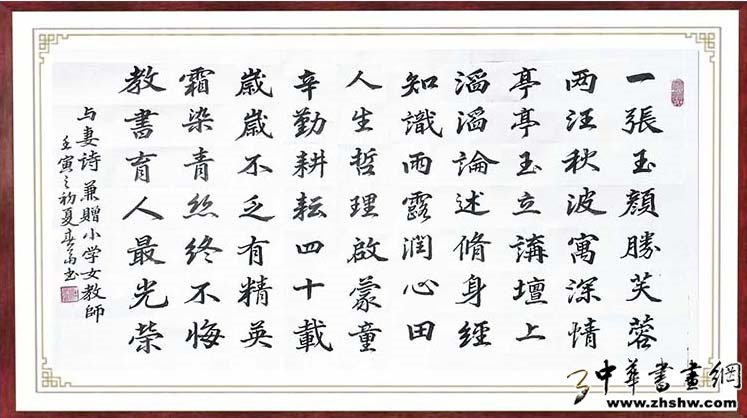 一張玉顏勝芙蓉
两汪秋波寓深情
亭亭玉立講壇上
滔滔論述脩身經
知識雨露润心田
人生哲理啟蒙童
辛勤耕耘四十載
歲歲不乏有精英
霜染青丝終不悔
教書育人最光榮
与妻詩兼贈小学女教師
壬寅之初夏书
中華書畫網
www.zhshw.com